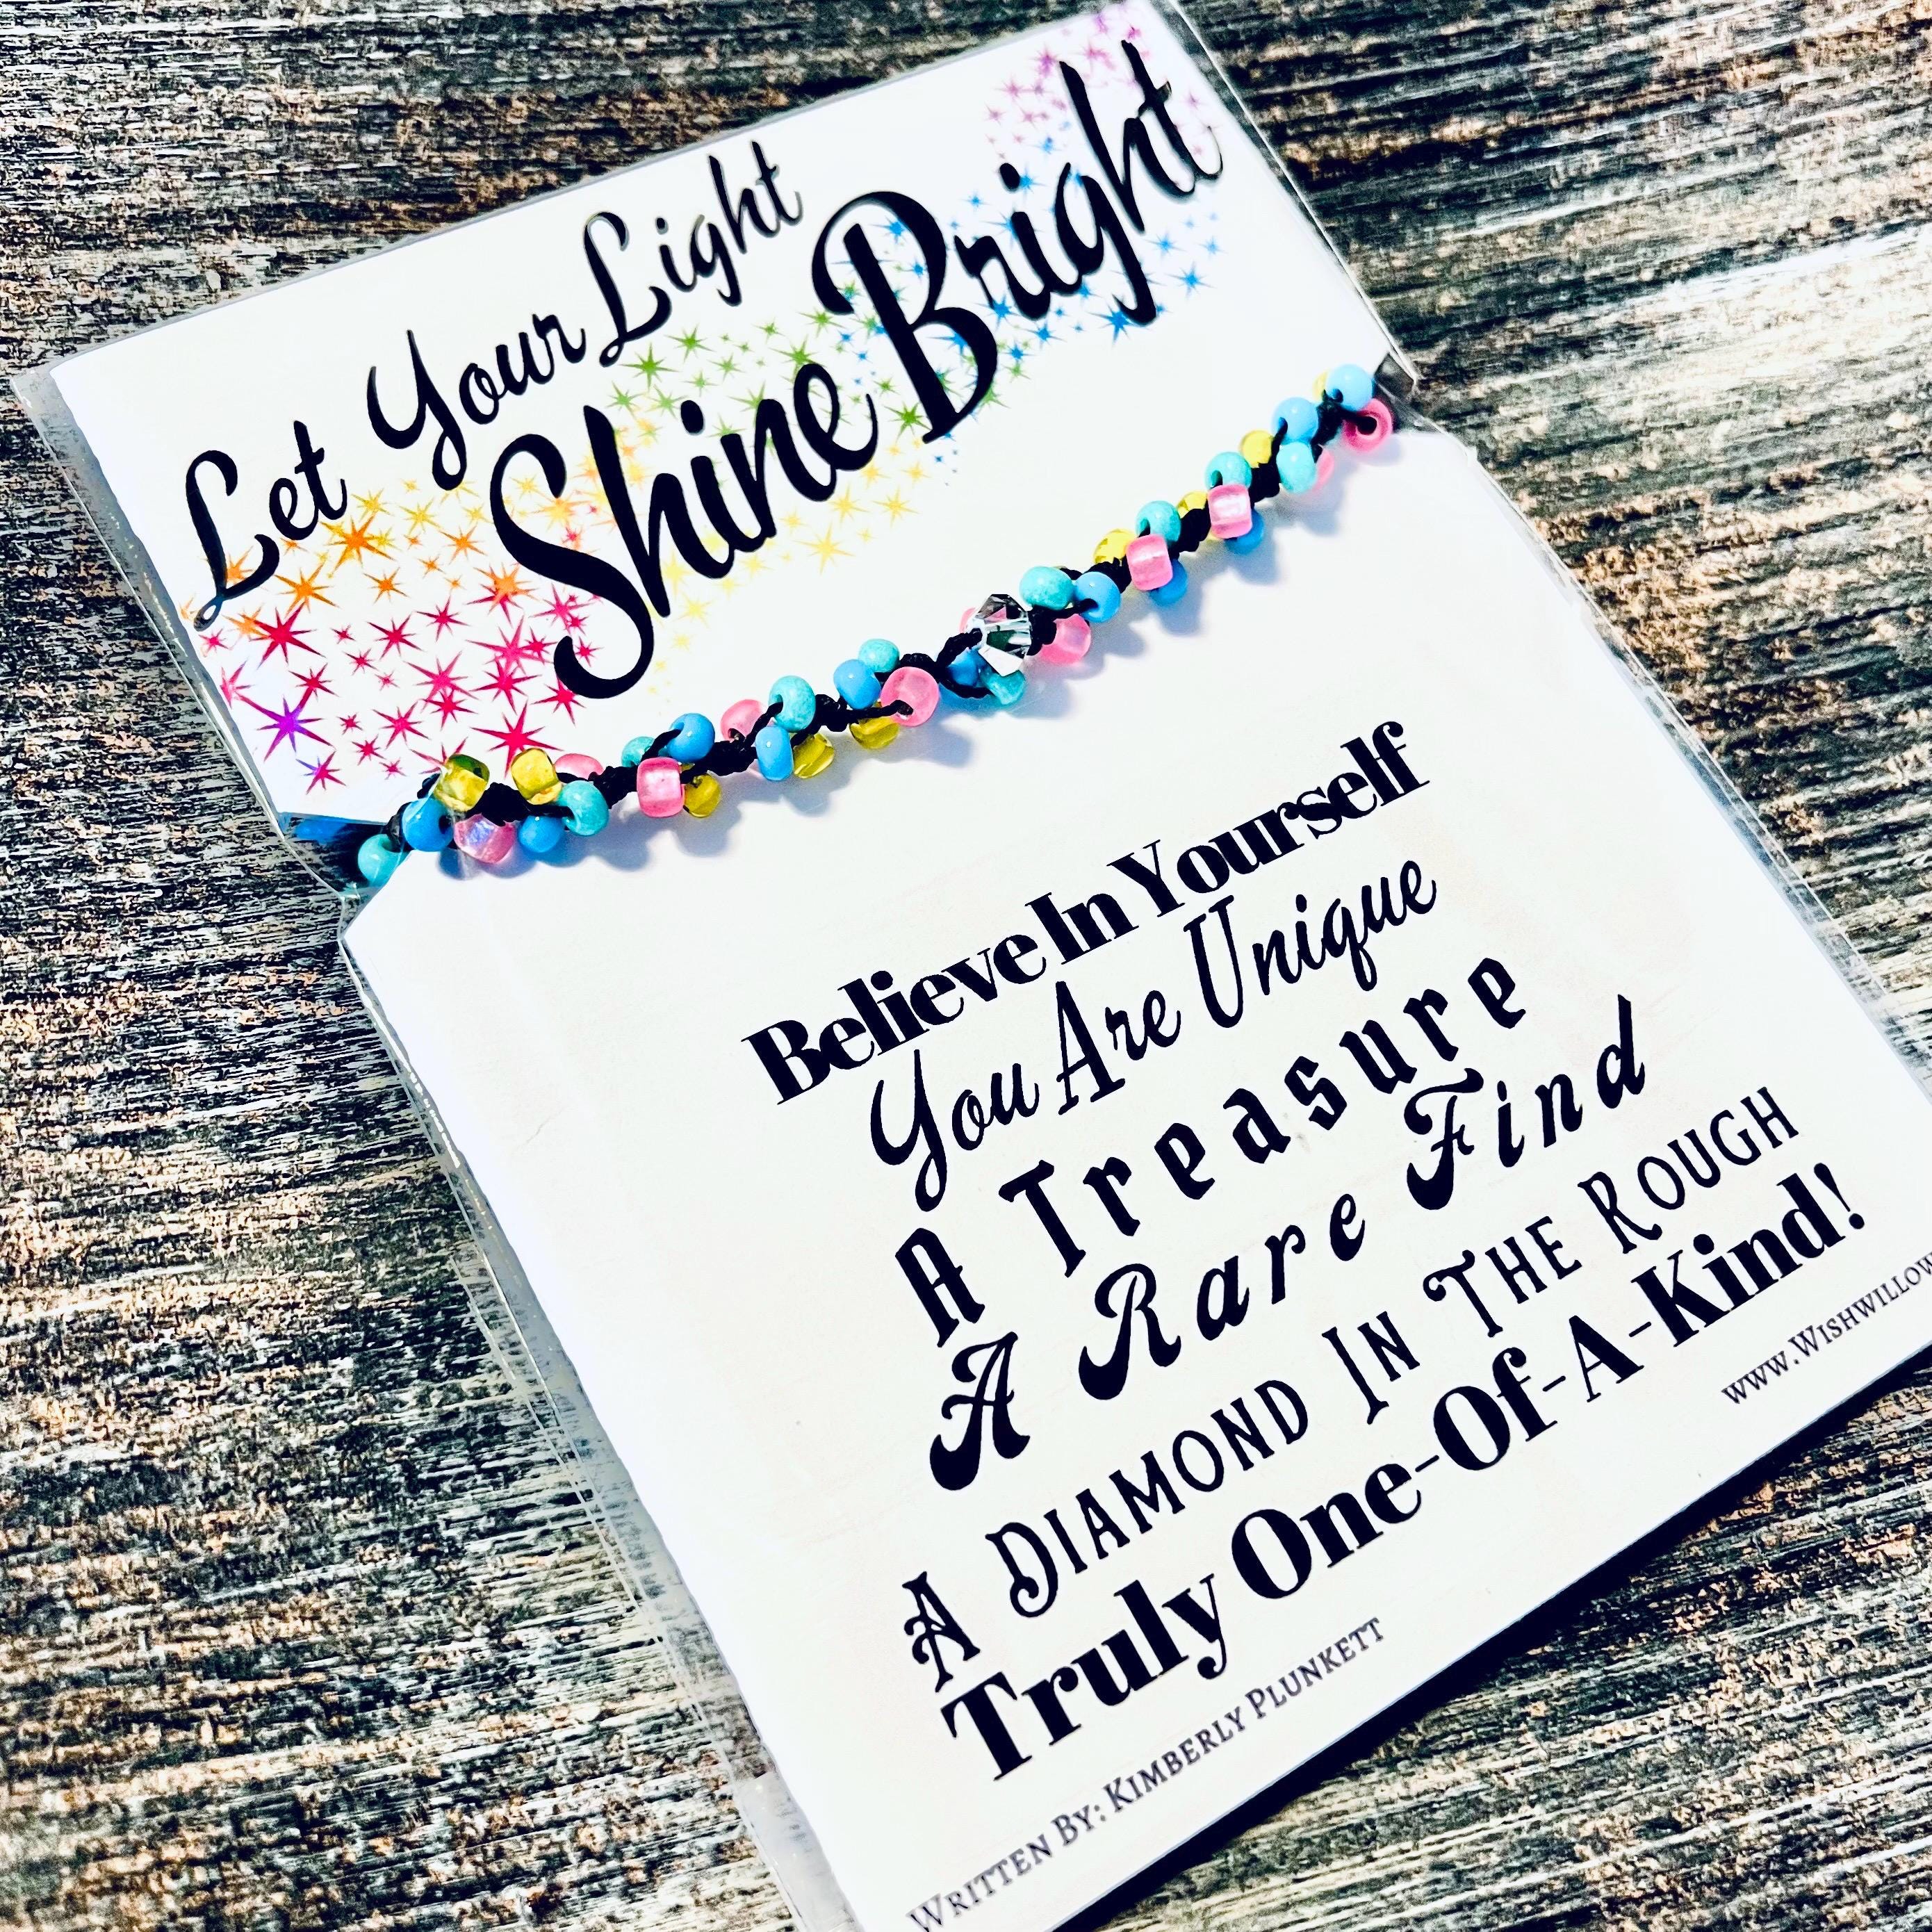 Let Your Light
Shine Bright
Believe In Yourself
You Are Unique
A Treasure
A Rare Find
A Diamond In The Rough
Truly One-Of-A-Kind!
Written By: Kimberly Plunkett